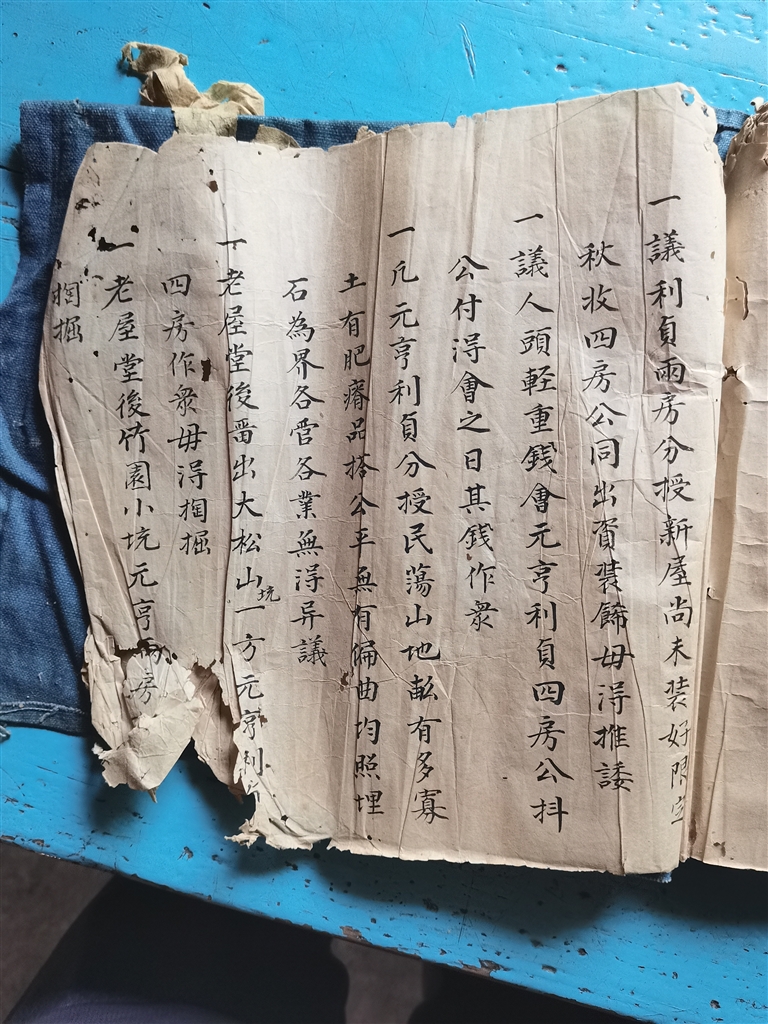 一議利貞兩房分授新屋尚未裝好限定
秋收四房公同出資裝飾毋得推諉
一議人頭輕重錢會元亨利貞四房公抖
公付得會之日其錢作衆
一凡元亨利貞分授民蕩山地畝有多寡
土有肥瘠品搭公平無有偏曲均照埋
石為界各管各業無得异議
一老屋堂後畱出大松山坑一方元亨利
四房作衆毋得掏掘
一老屋堂後竹園小坑元亨兩房
掏掘